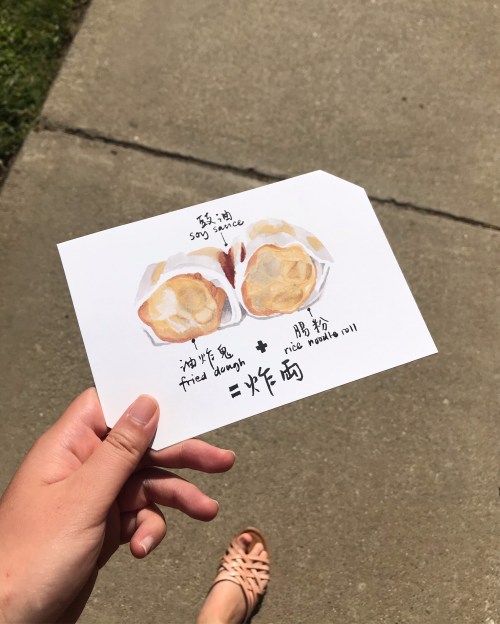 豉油
soy sauce
油炸鬼
fried dough
+
腸粉
rice noodle roll
= 炸両